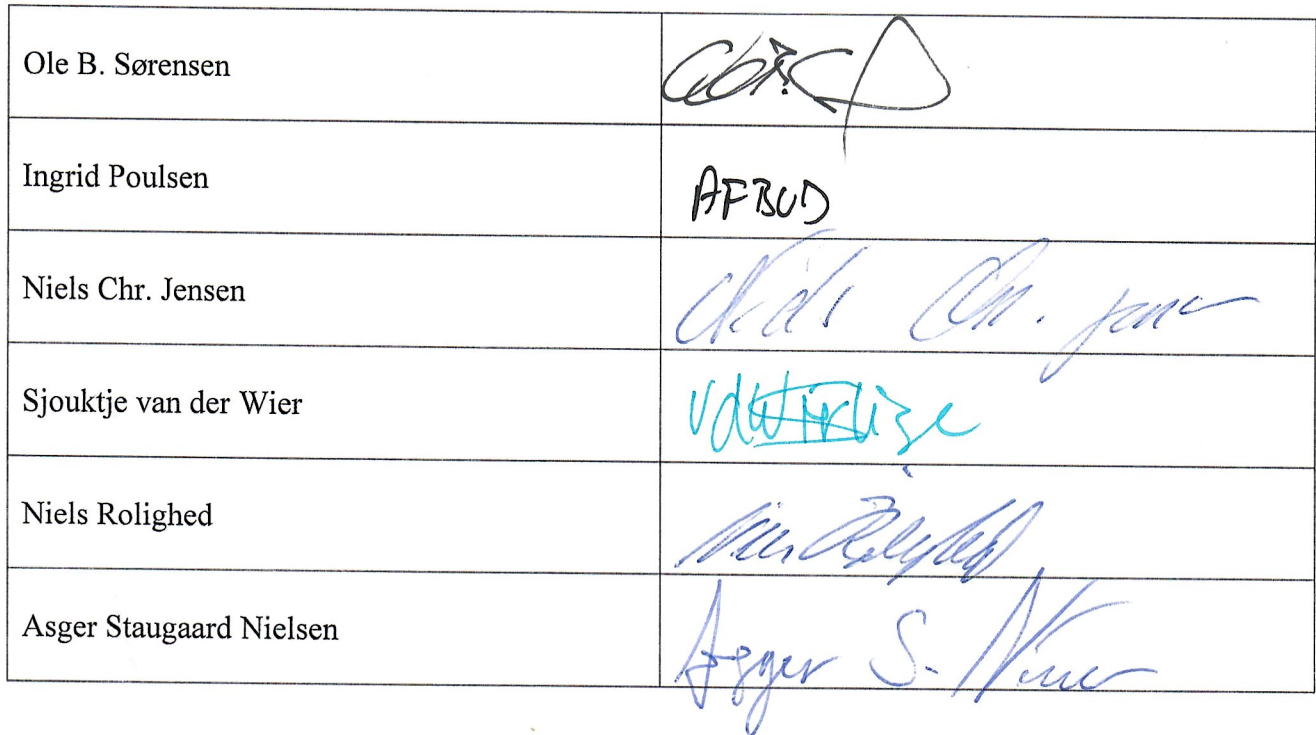 Ole B. Sørensen
Ingrid Poulsen
AFBUD
Niels Chr. Jensen
Niels Chr. Jensen
Sjouktje van der Wier
Niels Rolighed
Niels Rolighed
Asger Staugaard Nielsen
Asger S. Nielsen